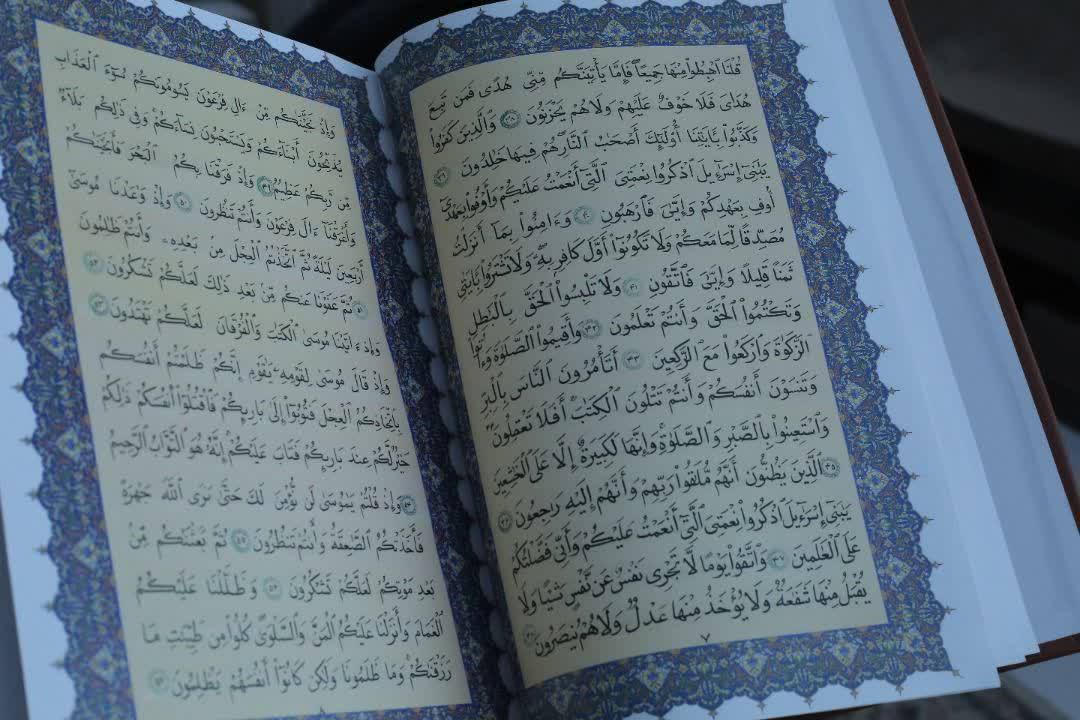 قُلْنَا ٱهْبِطُوا۟ مِنْهَا جَمِيعًا ۖ فَإِمَّا يَأْتِيَنَّكُم مِّنِّى هُدًى فَمَن تَبِعَ
هُدَاىَ فَلَا خَوْفٌ عَلَيْهِمْ وَلَا هُمْ يَحْزَنُونَ ٣٨ وَٱلَّذِينَ كَفَرُوا۟
وَكَذَّبُوا۟ بِـَٔايَٰتِنَآ أُو۟لَٰٓئِكَ أَصْحَٰبُ ٱلنَّارِ هُمْ فِيهَا خَٰلِدُونَ ٣٩
يَٰبَنِىٓ إِسْرَٰٓءِيلَ ٱذْكُرُوا۟ نِعْمَتِىَ ٱلَّتِىٓ أَنْعَمْتُ عَلَيْكُمْ وَأَوْفُوا۟ بِعَهْدِىٓ
أُوفِ بِعَهْدِكُمْ وَإِيَّٰىَ فَٱرْهَبُونِ ٤٠ وَءَامِنُوا۟ بِمَآ أَنزَلْتُ
مُصَدِّقًا لِّمَا مَعَكُمْ وَلَا تَكُونُوٓا۟ أَوَّلَ كَافِرٍۭ بِهِۦ ۖ وَلَا تَشْتَرُوا۟ بِـَٔايَٰتِى
ثَمَنًا قَلِيلًا وَإِيَّٰىَ فَٱتَّقُونِ ٤١ وَلَا تَلْبِسُوا۟ ٱلْحَقَّ بِٱلْبَٰطِلِ
وَتَكْتُمُوا۟ ٱلْحَقَّ وَأَنتُمْ تَعْلَمُونَ ٤٢ وَأَقِيمُوا۟ ٱلصَّلَوٰةَ وَءَاتُوا۟
ٱلزَّكَوٰةَ وَٱرْكَعُوا۟ مَعَ ٱلرَّٰكِعِينَ ٤٣ أَتَأْمُرُونَ ٱلنَّاسَ بِٱلْبِرِّ
وَتَنسَوْنَ أَنفُسَكُمْ وَأَنتُمْ تَتْلُونَ ٱلْكِتَٰبَ ۚ أَفَلَا تَعْقِلُونَ ٤٤
وَٱسْتَعِينُوا۟ بِٱلصَّبْرِ وَٱلصَّلَوٰةِ ۚ وَإِنَّهَا لَكَبِيرَةٌ إِلَّا عَلَى ٱلْخَٰشِعِينَ
٤٥ ٱلَّذِينَ يَظُنُّونَ أَنَّهُم مُّلَٰقُوا۟ رَبِّهِمْ وَأَنَّهُمْ إِلَيْهِ رَٰجِعُونَ ٤٦
يَٰبَنِىٓ إِسْرَٰٓءِيلَ ٱذْكُرُوا۟ نِعْمَتِىَ ٱلَّتِىٓ أَنْعَمْتُ عَلَيْكُمْ وَأَنِّى فَضَّلْتُكُمْ
عَلَى ٱلْعَٰلَمِينَ ٤٧ وَٱتَّقُوا۟ يَوْمًا لَّا تَجْزِى نَفْسٌ عَن نَّفْسٍ شَيْـًٔا وَلَا
يُقْبَلُ مِنْهَا شَفَٰعَةٌ وَلَا يُؤْخَذُ مِنْهَا عَدْلٌ وَلَا هُمْ يُنصَرُونَ ٤٨
٧
وَإِذْ نَجَّيْنَٰكُم مِّنْ ءَالِ فِرْعَوْنَ يَسُومُونَكُمْ سُوٓءَ ٱلْعَذَابِ
يُذَبِّحُونَ أَبْنَآءَكُمْ وَيَسْتَحْيُونَ نِسَآءَكُمْ ۚ وَفِى ذَٰلِكُم بَلَآءٌ
مِّن رَّبِّكُمْ عَظِيمٌ ٤٩ وَإِذْ فَرَقْنَا بِكُمُ ٱلْبَحْرَ فَأَنجَيْنَٰكُمْ
وَأَغْرَقْنَآ ءَالَ فِرْعَوْنَ وَأَنتُمْ تَنظُرُونَ ٥٠ وَإِذْ وَٰعَدْنَا مُوسَىٰٓ
أَرْبَعِينَ لَيْلَةً ثُمَّ ٱتَّخَذْتُمُ ٱلْعِجْلَ مِنۢ بَعْدِهِۦ وَأَنتُمْ ظَٰلِمُونَ
٥١ ثُمَّ عَفَوْنَا عَنكُم مِّنۢ بَعْدِ ذَٰلِكَ لَعَلَّكُمْ تَشْكُرُونَ ٥٢
وَإِذْ ءَاتَيْنَا مُوسَى ٱلْكِتَٰبَ وَٱلْفُرْقَانَ لَعَلَّكُمْ تَهْتَدُونَ ٥٣
وَإِذْ قَالَ مُوسَىٰ لِقَوْمِهِۦ يَٰقَوْمِ إِنَّكُمْ ظَلَمْتُمْ أَنفُسَكُم
بِٱتِّخَاذِكُمُ ٱلْعِجْلَ فَتُوبُوٓا۟ إِلَىٰ بَارِئِكُمْ فَٱقْتُلُوٓا۟ أَنفُسَكُمْ ذَٰلِكُمْ
خَيْرٌ لَّكُمْ عِندَ بَارِئِكُمْ فَتَابَ عَلَيْكُمْ ۚ إِنَّهُۥ هُوَ ٱلتَّوَّابُ ٱلرَّحِيمُ
٥٤ وَإِذْ قُلْتُمْ يَٰمُوسَىٰ لَن نُّؤْمِنَ لَكَ حَتَّىٰ نَرَى ٱللَّهَ جَهْرَةً
فَأَخَذَتْكُمُ ٱلصَّٰعِقَةُ وَأَنتُمْ تَنظُرُونَ ٥٥ ثُمَّ بَعَثْنَٰكُم مِّنۢ
بَعْدِ مَوْتِكُمْ لَعَلَّكُمْ تَشْكُرُونَ ٥٦ وَظَلَّلْنَا عَلَيْكُمُ
ٱلْغَمَامَ وَأَنزَلْنَا عَلَيْكُمُ ٱلْمَنَّ وَٱلسَّلْوَىٰ ۖ كُلُوا۟ مِن طَيِّبَٰتِ مَا
رَزَقْنَٰكُمْ ۖ وَمَا ظَلَمُونَا وَلَٰكِن كَانُوٓا۟ أَنفُسَهُمْ يَظْلِمُونَ ٥٧
٨